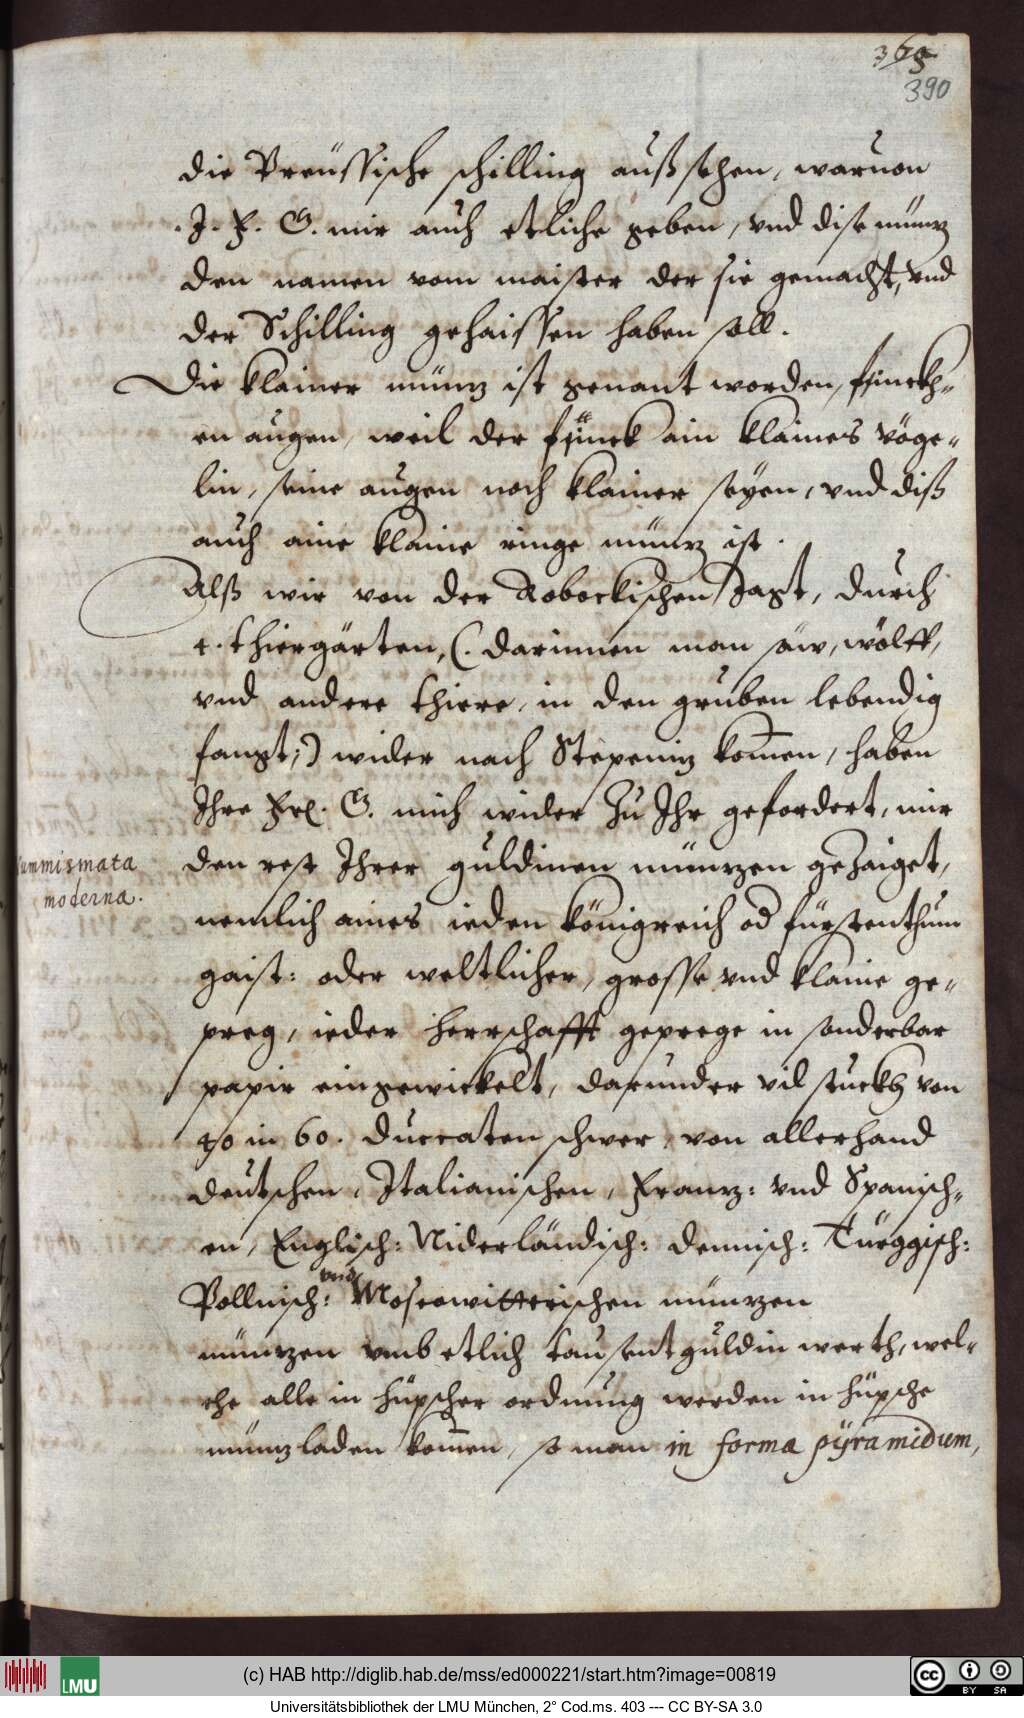 365
390
die Preüssische schilling außsehen, waruon
J. F. G. mir auch etliche geben, vnd dise müntz
den namen vom maister der sie gemacht, vnd
der Schilling gehaissen haben soll.
Die klainer müntz ist genant worden, finckh-
en augen, weil der finck ain klaines vöge-
lin, seine augen noch klainer seyen, vnd diß
auch aine klaine ringe müntz ist.
Alß wir von der Robockischen Jagt, durch
thiergärten, (. darinnen man säw, wölff,
vnd andere thiere, in den gruben lebendig
fangt;) wider nach Stepenitz kom̄en, haben
Ihre Frl. G. mich wider Zu Ihr gefordert, mir
Nummismata
moderna.
den rest Ihrer guldinen müntzen geZaiget,
nemlich aines ieden königreich od fürstenthum
gaist: oder weltlicher, grosse vnd klaine ge-
preg, ieder herrschafft geprege in sonderbar
papir eingewickelt, darunder vil stuckh von
40 in 60. Duccaten schwer, von allerhand
deutschen, Italianischen, Frantz: vnd Spanisch-
en, Englisch: Niderländisch: dennisch: Türggisch:
Pollnisch: vnd Moscowitterischen müntzen
müntzen vmb etlich tausent guldin werth, wel-
che alle in hüpscher ordnung werden in hüpsche
müntzladen kom̄en, so man in forma pÿramidum,
(c) HAB http://diglib.hab.de/mss/ed000221/start.htm?image=00819
LMU
cc BY SA
Universitätsbibliothek der LMU München, 2° Cod.ms. 403 --- CC BY-SA 3.0